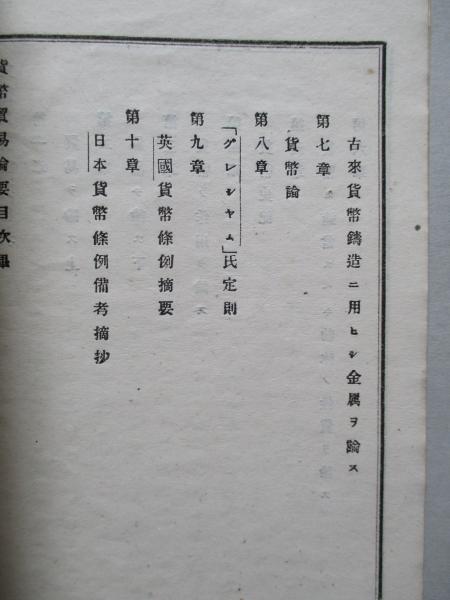 古來貨幣鑄造ニ用ヒシ金属ヲ論ス
第七章
貨幣論
第八章
「グレシヤム」氏定則
第九章
英國貨幣條例摘要
第十章
日本貨幣條例備考摘抄
貨幣貿易論要目次畢